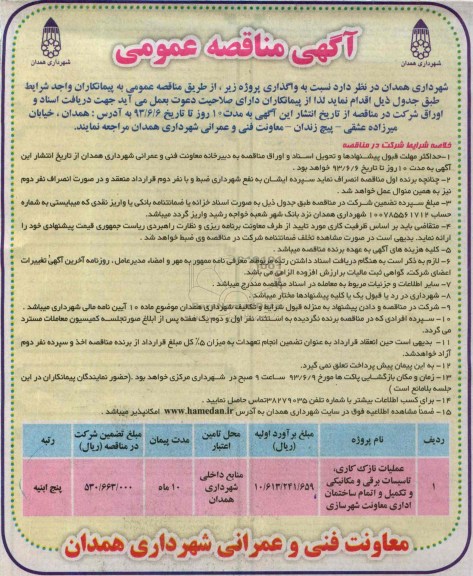 آگهی مناقصه عمومی
شهرداری همدان
شهرداری همدان
شهرداری همدان در نظر دارد نسبت به واگذاری پروژه زیر، از طریق مناقصه عمومی به پیمانکاران واجد شرایط
طبق جدول ذیل اقدام نماید لذا از پیمانکاران دارای صلاحیت دعوت بعمل می آید جهت دریافت اسناد و
اوراق شرکت در مناقصه از تاریخ انتشار این آگهی به مدت ۱۰ روز تا تاریخ ۹۳/۶/۶ به آدرس : همدان ، خیابان
میرزاده عشقی - پیچ زندان - معاونت فنی و عمرانی شهرداری همدان مراجعه نمایند.
خلاصه شرایط شرکت در مناقصه
۱-حداکثر مهلت قبول پیشنهادها و تحویل اسناد و اوراق مناقصه به دبیرخانه معاونت فنی و عمرانی شهرداری همدان از تاریخ انتشار این
آگهی به مدت ۱۰ روز تا تاریخ ۹۳/۶/۶ خواهد بود .
۲-چنانچه برنده اول مناقصه انصراف نماید سپرده ایشان به نفع شهرداری ضبط و با نفر دوم قرارداد منعقد و در صورت انصراف نفر دوم
نیز به همین منوال عمل خواهد شد .
۳- مبلغ سپرده تضمین شرکت در مناقصه طبق جدول ذیل به صورت اسناد خزانه یا ضمانتنامه بانکی یا واریز نقدی که میبایستی به شماره
حساب ۱۰۰۷۸۵۵۶۱۷۱۲ شهرداری همدان نزد بانک شهر شعبه خواجه رشید واریز گردد میباشد.
۴- متقاضی باید بر اساس ظرفیت کاری مورد تایید از طرف معاونت برنامه ریزی و نظارت راهبردی ریاست جمهوری قیمت پیشنهادی خود را
ارائه نماید. بدیهی است در صورت مشاهده تخلف ضمانتنامه شرکت در مناقصه وی ضبط خواهد شد .
۵- کلیه هزینه های آگهی به عهده برنده مناقصه میباشد.
۶- لازم به ذکر است به هنگام دریافت اسناد داشتن رتبه مربوطه، معرفی نامه ممهور به مهر و امضاء مدیرعامل، روزنامه آخرین آگهی تغییرات
اعضای شرکت، گواهی ثبت مالیات بر ارزش افزوده الزامی می باشد.
۷- سایر اطلاعات و جزئیات مربوط به معامله در اسناد مناقصه مندرج میباشد.
۸- شهرداری در رد یا قبول یک یا کلیه پیشنهادها مختار میباشد.
۹- شرکت در مناقصه و دادن پیشنهاد به منزله قبول شرایط و تکالیف شهرداری همدان موضوع ماده ۱۰ آیین نامه مالی شهرداری میباشد.
۱۰- سپرده افرادی که در مناقصه برنده نگردیده به استثناء نفر اول و دوم یک هفته پس از ابلاغ صورتجلسه کمیسیون معاملات مسترد
می گردد.
۱۱- بدیهی است حین انعقاد قرارداد به عنوان تضمین انجام تعهدات به میزان ۵٪ کل مبلغ قرارداد از برنده مناقصه اخذ و سپرده نفر دوم
آزاد خواهدشد.
۱۲- به این پیمان پیش پرداخت تعلق نمی گیرد.
۱۳- زمان و مکان بازگشایی پاکت ها مورخ ۹۳/۶/۹ ساعت ۹ صبح در شهرداری مرکزی خواهد بود .(حضور نمایندگان پیمانکاران در این
جلسه بلامانع است )
۱۴- برای کسب اطلاعات بیشتر با شماره تلفن ۳۸۲۷۹۰۳۵ تماس حاصل نمایید .
۱۵- ضمنا مشاهده اطلاعیه فوق در سایت شهرداری همدان به آدرس www.hamedan.ir امکانپذیر میباشد .
ردیف نام پروژه مبلغ برآورد اولیه (ریال) محل تامین اعتبار مدت پیمان مبلغ تضمین شرکت در مناقصه (ریال) رتبه
۱ عملیات نازک کاری، تاسیسات برقی و مکانیکی و تکمیل و اتمام ساختمان اداری معاونت شهرسازی ۱۰/۶۱۳/۲۴۱/۶۵۹ منابع داخلی شهرداری همدان ۱۰ ماه ۵۳۰/۶۶۳/۰۰۰ پنج ابنیه
معاونت فنی و عمرانی شهرداری همدان